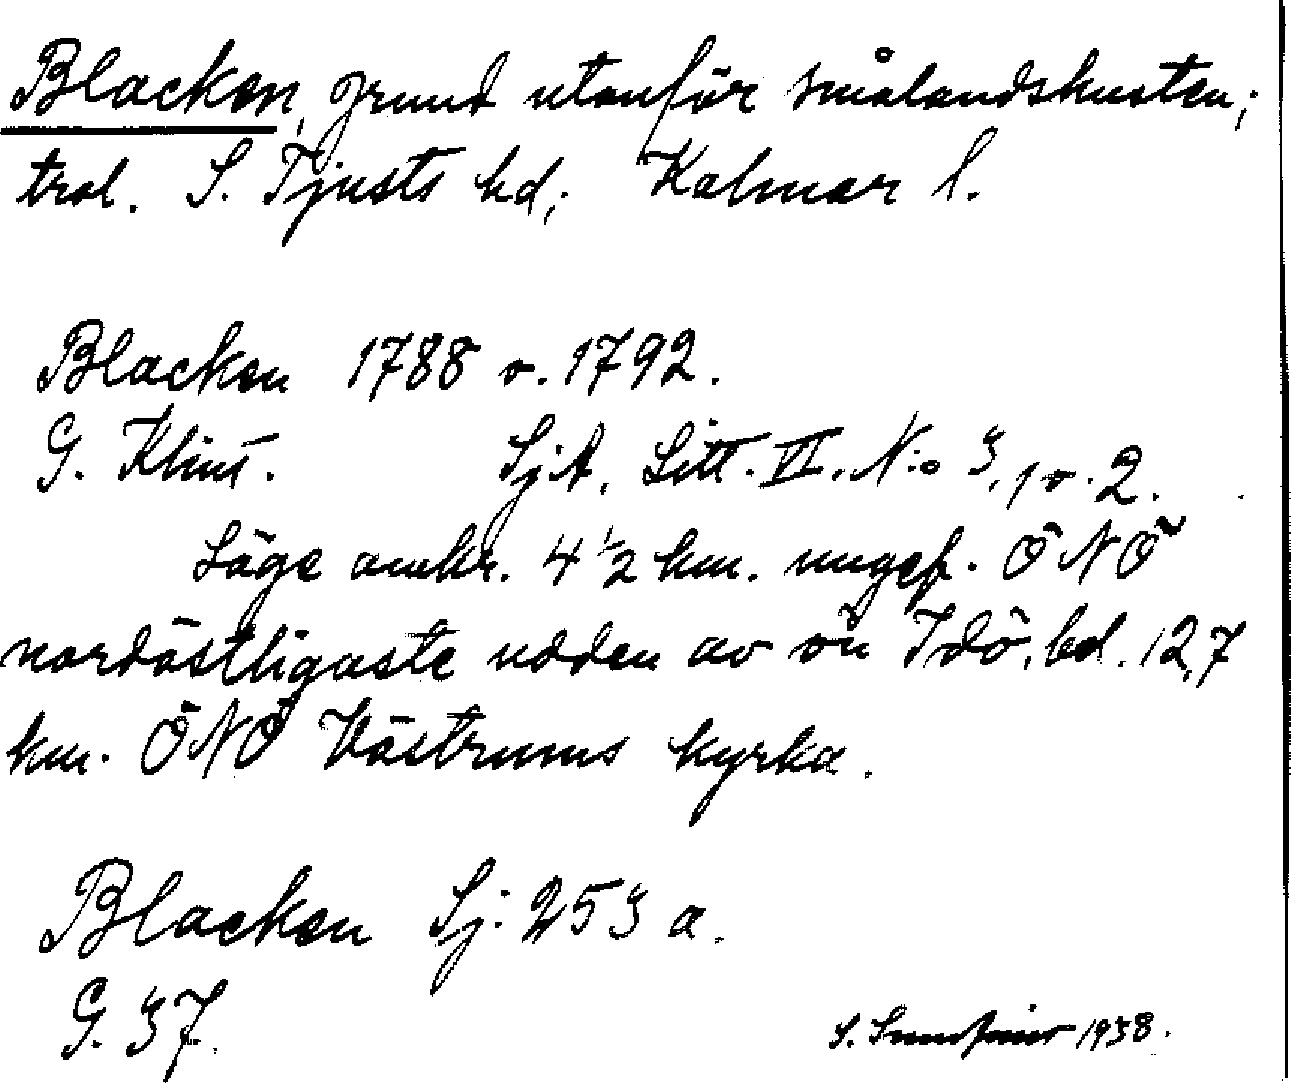 Blacken, grund utanför smålandskusten;
trol. S. Tjusts hd; Kalmar l.
Blacken 1788 o. 1792.
G. Klint. SjA. Litt. VI. N:o 3, 1 o. 2.
Läge omkr. 4 1/2 km. ungef. ÖNÖ
nordöstligaste udden av ön Idö, bel. 12,7
km. ÖNÖ Västrums kyrka.
Blacken Sj: 253 a.
G. 37.
S. 1938.